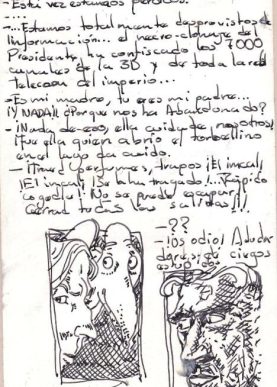 - Esta vez estamos perdidos.
....
-...Estamos totalmente desprovistos de
información... el necro-clonage del
Presidente ha confiscado los 7000
canales de la 3D y de toda la red
Telecom del imperio...
- Es mi madre, tu eres mi padre...
¡Y NADA!! ¿Por que nos ha Abandonado?
- ¡Nada de eso, ella cuida de nosotros,
¡Fue ella quien abrió el torbellino
en el lago de acido.
- ¡Traed perfumes, trapos ¡El incal¡
¡El incal¡ ¡Se lo ha tragado!... ¡Rápido
cogedlo! ¡No se puede escapar!
Cerrad todas las salidas!!!
- ??
- ¡Os odio!
de ciegos